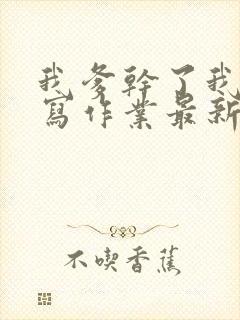 我爹幹了我
寫作業最新
不喫香蕉